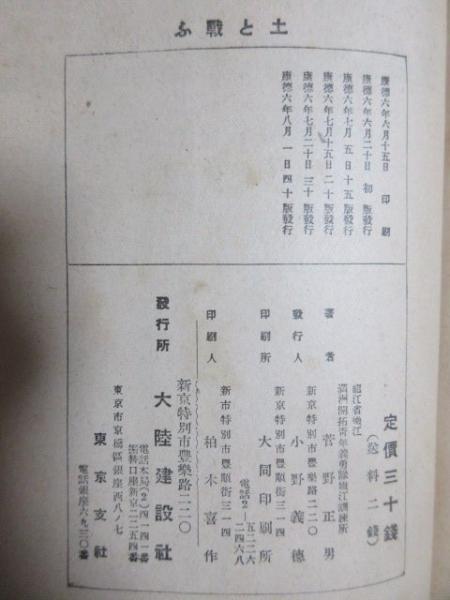 土と戰ふ
康德六年六月十五日 印刷
康德六年六月二十日 初版發行
康德六年七月五日十五版發行
康德六年七月十五日二十版發行
康德六年七月二十日三十版發行
康德六年八月一日四十版發行
定價三十錢
(送料二錢)
龍江省嫩江
滿洲開拓青年義勇隊嫩江訓練所
著者 菅野正男
新京特別市豊樂路二二〇
發行人 小野義德
新京特別市豊順街三一四
印刷所 大同印刷所
電話2—五二二六
二四六八
新市特別市豊順街三一四
印刷人 柏木喜作
新京特別市豊樂路二二〇
發行所 大陸建設社
電話本局(2)四一四一番
振替口座新京二二五四番
東京市京橋區銀座西八ノ七
東京支社
電話銀座六九三〇番